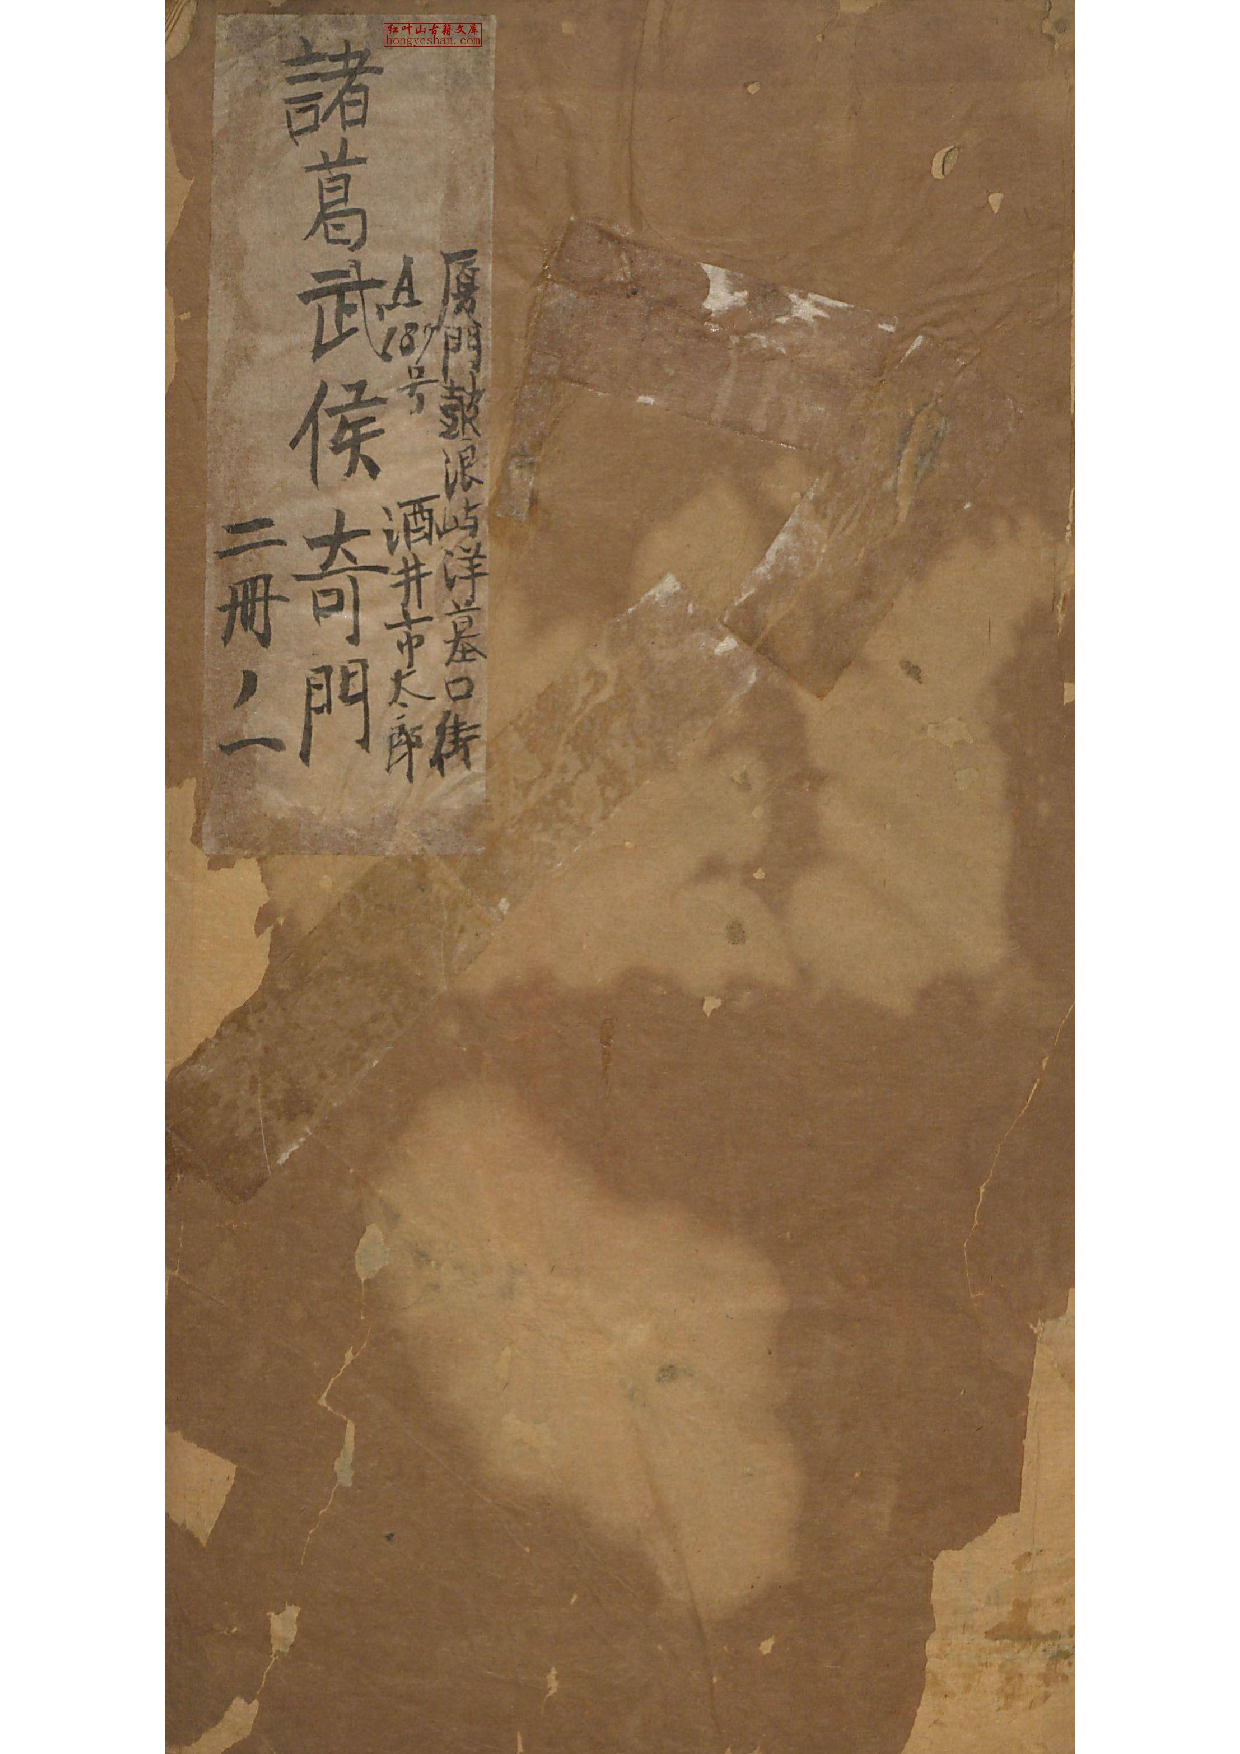 红叶山古籍文库
hongyeshan.com
厦門鼓浪屿洋墓口街
A187号
酒井市太郎
諸葛武侯奇門
二冊ノ一